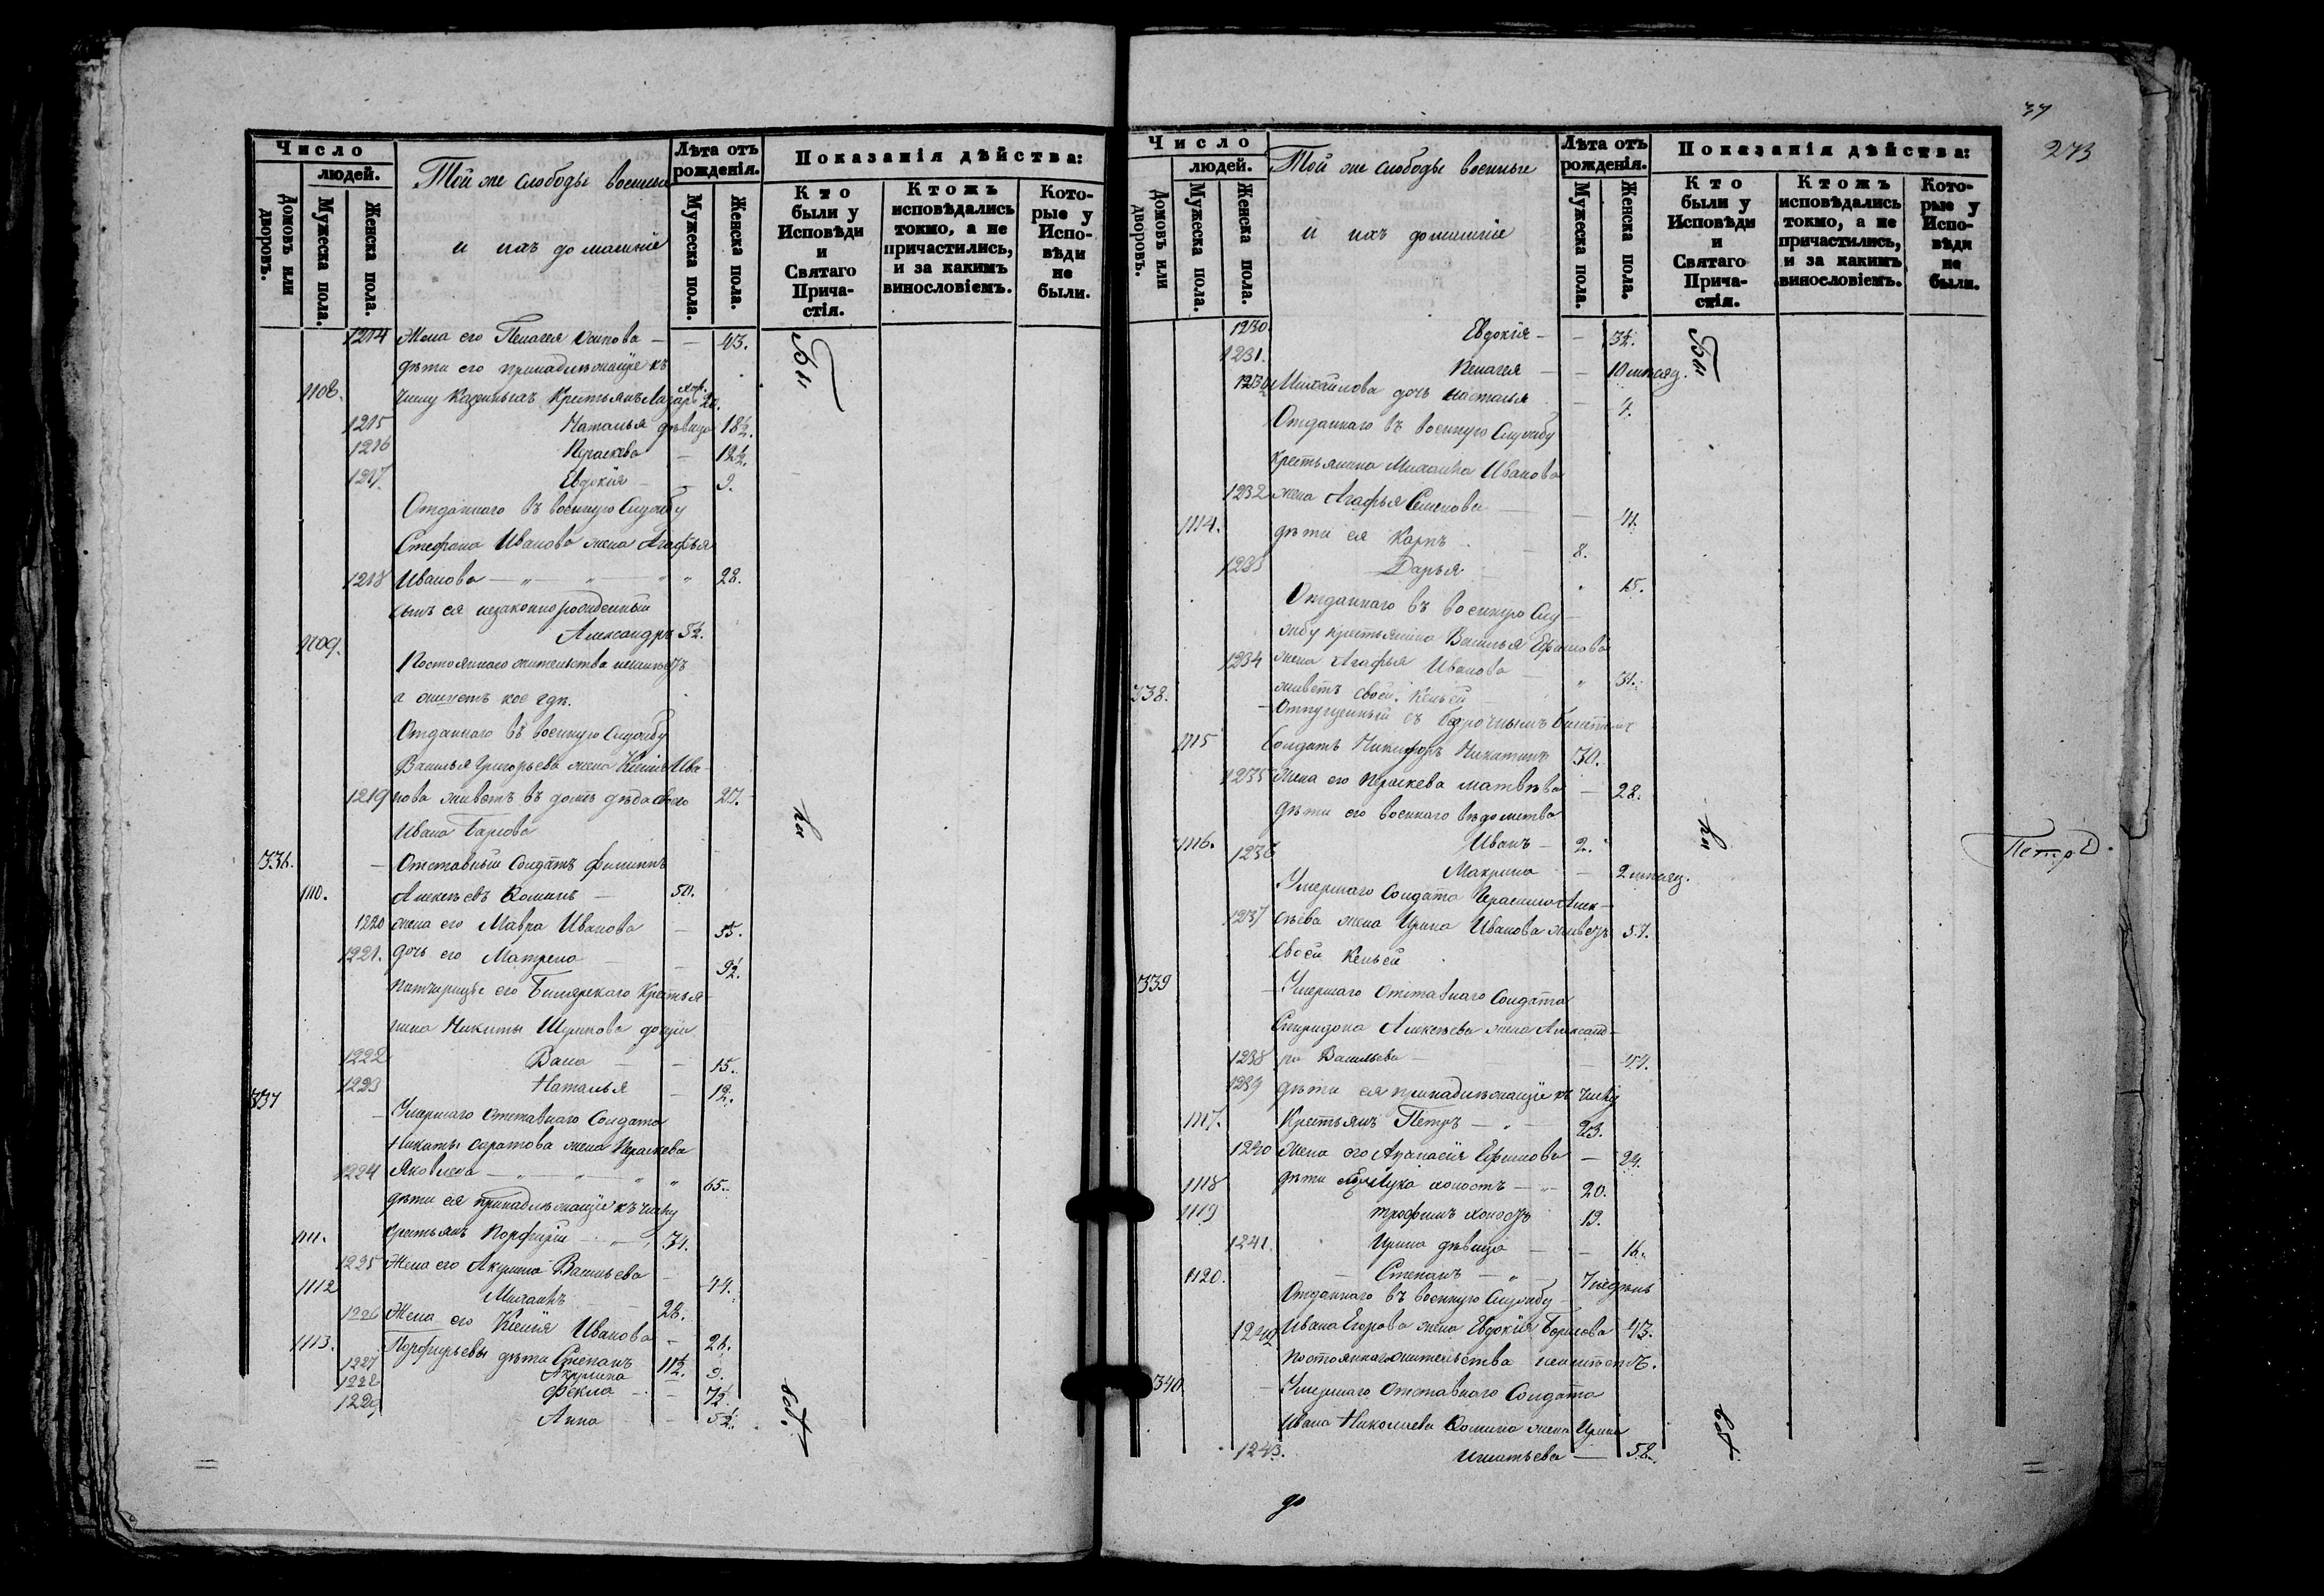 Число
людей.
Домовъ или дворовъ.
Мужеска пола.
Женска пола.
Той же слободы военные
и ихъ домашніе
Лѣта отъ рожденія.
Мужеска пола.
Женска пола.
Показанія дѣйства:
Кто были у Исповѣди и Святаго Прича-стія.
Ктожъ исповѣдались токмо, а не причастились, и за какимъ винословіемъ.
Кото-рые у Испо-вѣди не были.
1214 Жена его Пелагея Осипова — — 43.
дѣти его принадлежащіе къ
1108. числу казенныхъ крестьянъ Лазарь хол. 20.
1215 Наталья дѣвица 18½.
1216 Параскева — 12½.
1217. Евдокія — 9.
Отданнаго въ военную службу
Стефана Иванова жена Агафья
1218 Иванова — " — " — " " 28.
сынъ ея незаконнорожденный
1109. Александръ 5½.
Постояннаго жительства неимѣетъ
а живетъ кое гдѣ.
Отданнаго въ военную службу
Василья Григорьева жена Ксенія Ива-
1219 нова живетъ въ домѣ дѣда своего 27.
Ивана
336. — Отставный солдатъ Филиппъ
1110. Алексѣевъ Фоминъ — 50.
1220 жена его Мавра Иванова — 55.
1221. дочь его Матрена — — 9½.
патчерицы его Билярскаго крестья-
нина Никиты дощери
1222 Васа — — 15.
1223 Наталья — 12.
337 — Умершаго отставнаго солдата
Никиты жена Параскева
1224 Яковлева — " — " — " " 65.
дѣти ея принадлежащіе къ числу
1111. крестьянъ Порфирій — " — 34.
1225 Жена его Акулина Васильева — 44.
1112 Михаилъ — 28.
1226 Жена его Ксенія Иванова — 26.
1113. Порфирьевы дѣти Степанъ 11½.
1227 Акулина 9.
1228 Фекла — — 7½.
1229 Анна — 5½.
Бы
ли
всѣ.
37
273
Число
людей.
Домовъ или дворовъ.
Мужеска пола.
Женска пола.
Той же слободы военные
и ихъ домашніе
Лѣта отъ рожденія.
Мужеска пола.
Женска пола.
Показанія дѣйства:
Кто были у Исповѣди и Святаго Прича-стія.
Ктожъ исповѣдались токмо, а не причастились, и за какимъ винословіемъ.
Кото-рые у Испо-вѣди не были.
1230. Евдокія — — 3½.
1231. Пелагея — — 10 мѣсяц.
Михайлова дочь Настасья — 4.
Отданнаго въ военную службу
крестьянина Михаила Иванова
1232 жена Агафья Семенова — — 41.
1114. дѣти ея Карпъ — 8.
1233 Дарья — " 15.
Отданнаго въ военную слу-
жбу крестьянина Василья Ефимова
1234 жена Агафья Иванова — " 31.
338. живетъ своей кельей —
— Отпущенный съ безсрочнымъ билетомъ
1115 солдатъ Никифоръ Никитинъ 30.
1235 жена его Параскева Матвѣева — 28.
дѣти его военнаго вѣдомства
1116. Иванъ — 2.
1236 Макрина — 2 мѣсяц.
Умершаго солдата Герасима Алек-
1237 сѣева жена Ирина Иванова живетъ 57.
своей кельей.
339 — Умершаго отставнаго солдата
Спиридона Алексѣева жена Александ-
1238 ра Васильева — — 44.
1239 дѣти ея принадлежащіе къ числу
1117. крестьянъ Петръ — " — 23.
1240 Жена его Афанасія Ефимова — 24.
1118 дѣти Лука холостъ — " — 20.
1119 Трофимъ холостъ 19.
1241. Ирина дѣвица — — 16.
1120. — Степанъ — " — 7 недѣль
Отданнаго въ военную службу —
1242 Ивана Егорова жена Евдокія Борисова 43.
постояннаго жительства неимѣетъ.
340 — Умершаго отставнаго солдата
Ивана Николаева Фомина жена Ирина
1243. Игнатьева — 52.
Бы
ли
всѣ.
Петръ